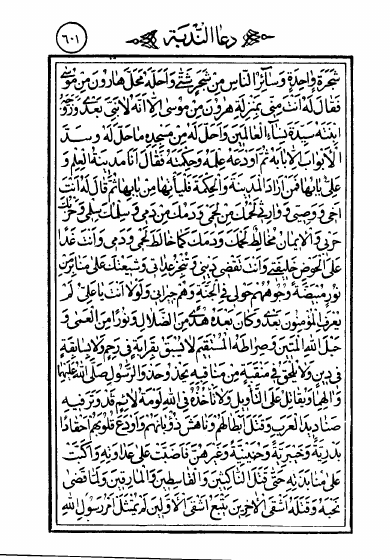 دعاء الندبة
٦٠١
شجرة واحدة وسائر الناس من شجر شتى واحله محل هارون من موسى
فقال له انت مني بمنزلة هرون من موسى الا انه لا نبي بعدي وزوجه
ابنته سيدة نساء العالمين واحل له من مسجده ما حل له وسد
الابواب الا بابه ثم اودعه علمه وحكمته فقال انا مدينة العلم و
علي بابها فمن اراد المدينة والحكمة فليأتها من بابها ثم قال له انت
اخي ووصيي ووارثي لحمك من لحمي ودمك من دمي وسلمك سلمي وحربك
حربي والايمان مخالط لحمك ودمك كما خالط لحمي ودمي وانت غدا
على الحوض خليفتي وانت تقضي ديني وتنجز عداتي وشيعتك على منابر من
نور مبيضة وجوههم حولي في الجنة وهم جيراني ولولا انت يا علي لم
يعرف المؤمنون بعدي وكان بعده هدى من الضلال ونورا من العمى و
حبل الله المتين وصراطه المستقيم لا يسبق بقرابة في رحم ولا بسابقة
في دين ولا يلحق في منقبة من مناقبه يحذو حذو الرسول صلى الله عليهما
والهما ويقاتل على التأويل ولا تأخذه في الله لومة لائم قد وتر فيه
صناديد العرب وقتل ابطالهم وناهش ذؤبانهم واودع قلوبهم احقادا
بدرية وخيبرية وحنينية وغيرهن فاضبت على عداوته واكبت
على منابذته حتى قتل الناكثين والقاسطين والمارقين ولما قضى
نحبه وقتله اشقى الاخرين يتبع اشقى الاولين لم يمتثل امر رسول الله